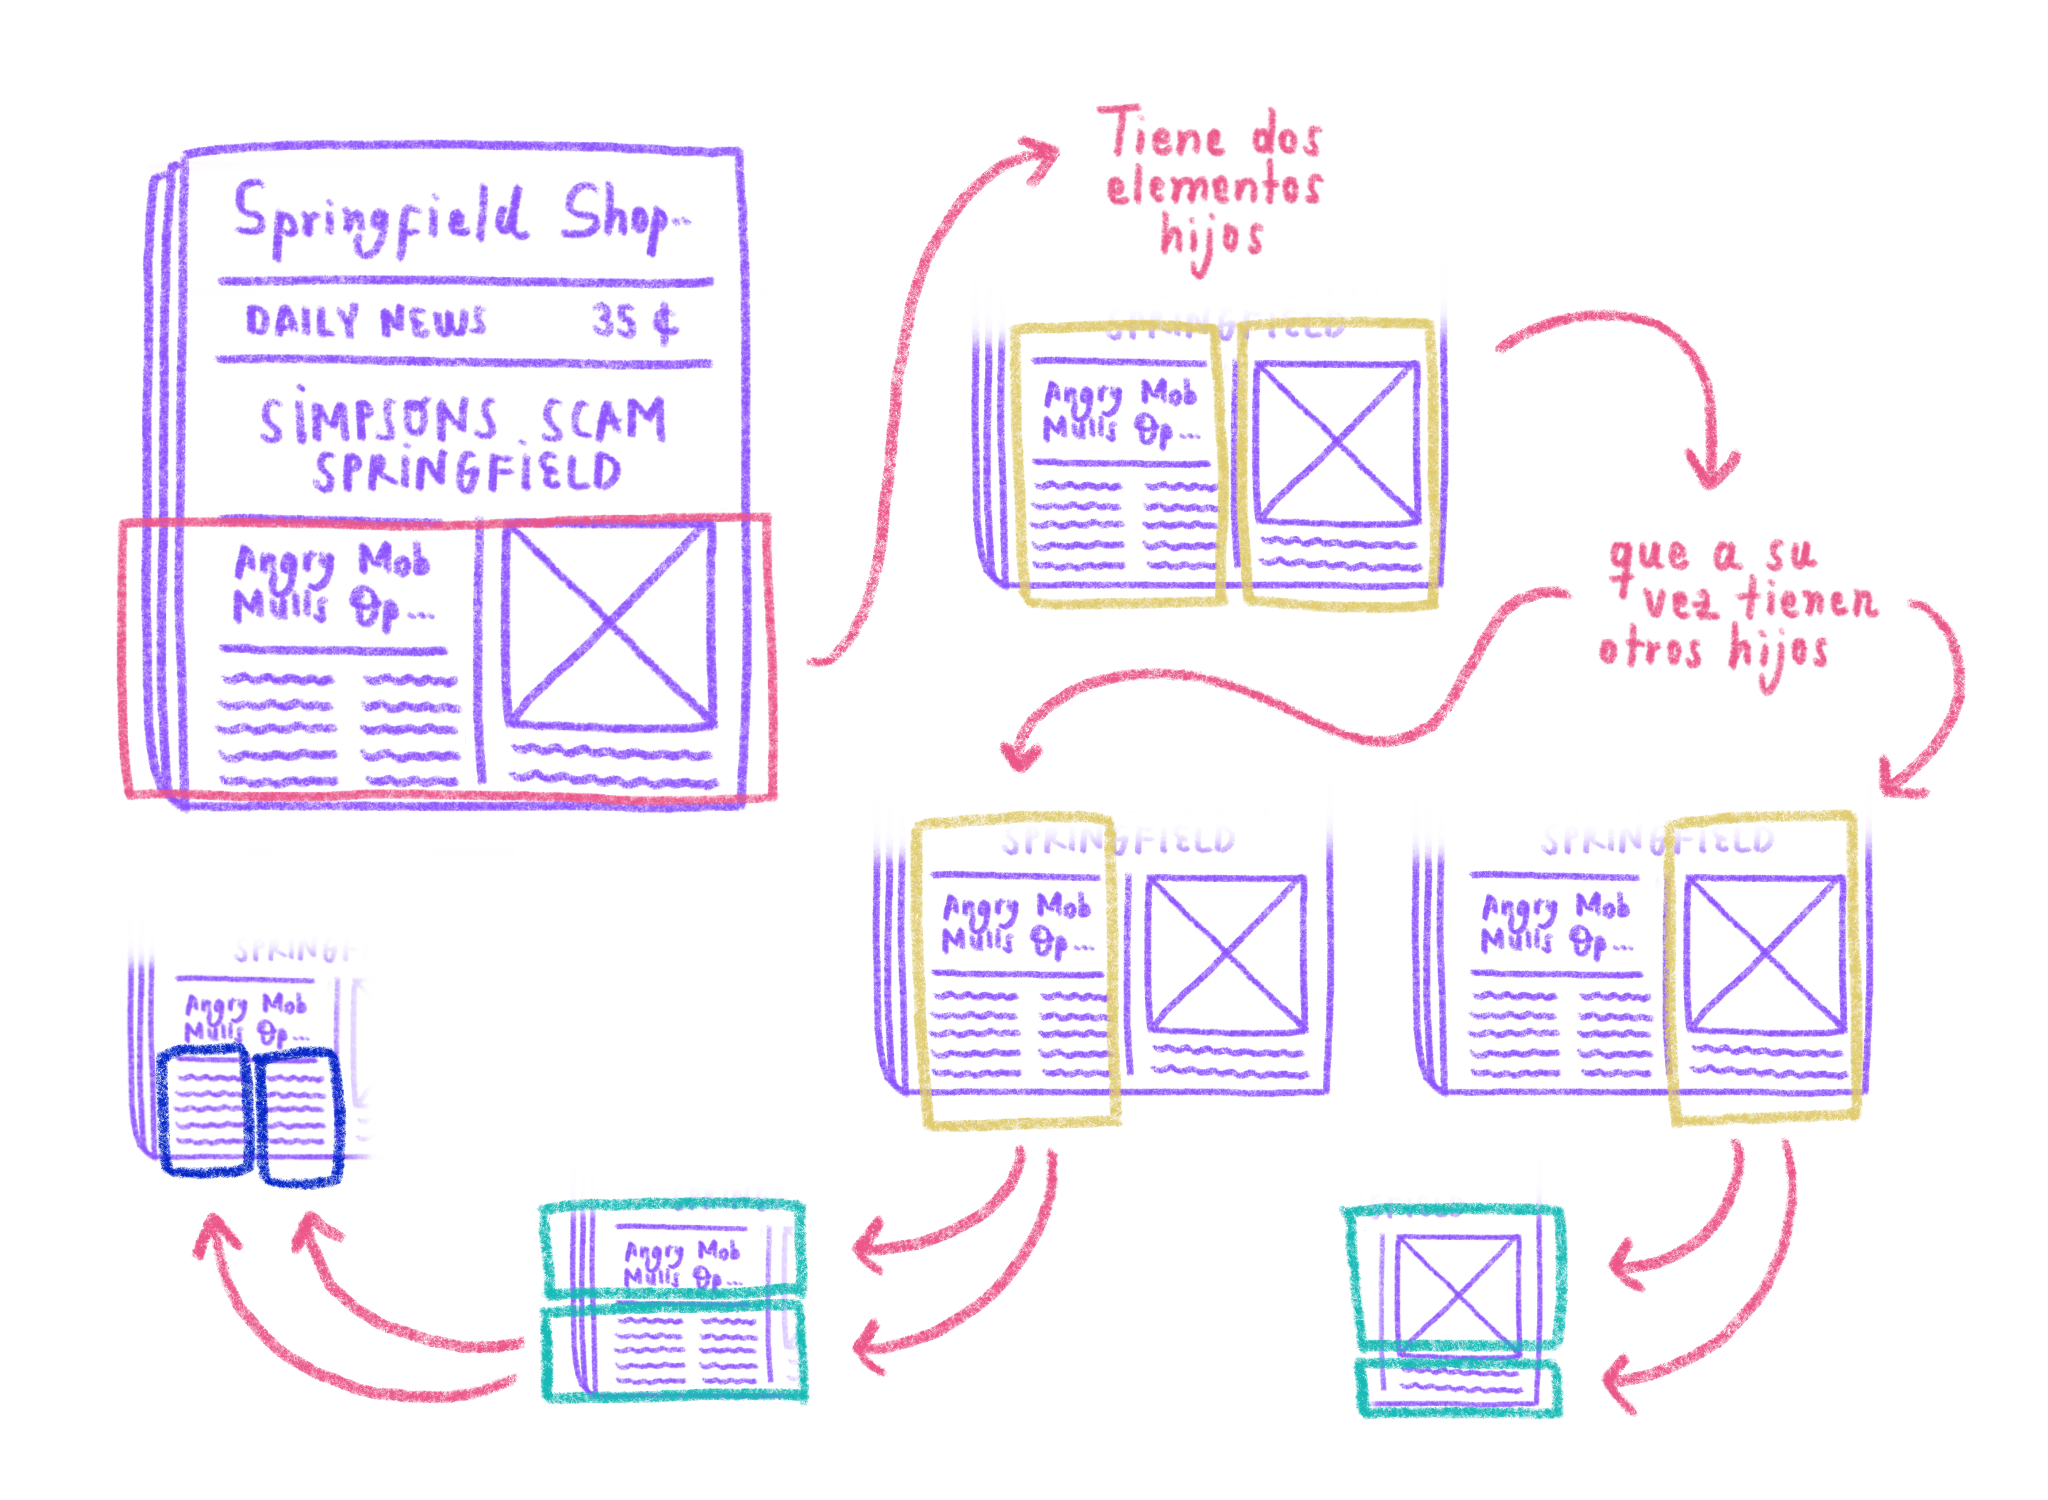 Springfield Shop...
DAILY NEWS 35 ¢
SiMPSONS SCAM
SPRiNGFiELD
Angry Mob
Mulls Op...
Tiene dos
elementos
hijos
SPRINGFIELD
Angry Mob
Mulls Op...
que a su
vez tienen
otros hijos
SPRINGFIELD
Angry Mob
Mulls Op...
SPRINGFIELD
Angry Mob
Mulls Op...
SPRINGF
Angry Mob
Mulls Op...
Angry Mob
Mulls Op...